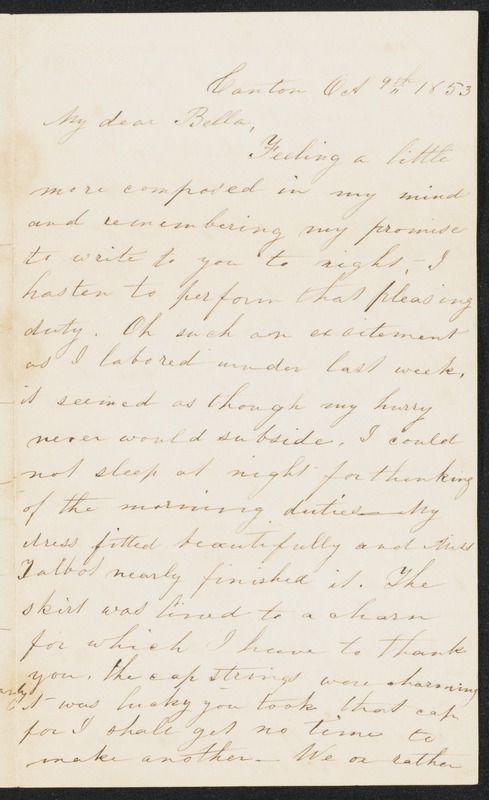 Canton Oct 9th 1853
My dear Bella,
Feeling a little
more composed in my mind
and remembering my promise
to write to you to night, - I
hasten to perform that pleasing
duty. Oh such an excitement
as I labored under last week,
it seemed as though my hurry
never would subside. I could
not sleep at night for thinking
of the morning duties — My
dress fitted beautifully and Miss
Talbot nearly finished it. The
skirt was lined to a charm
for which I have to thank
you. the cap strings were charming
it was lucky you took that cap
for I shall get no time to
make another — We or rather